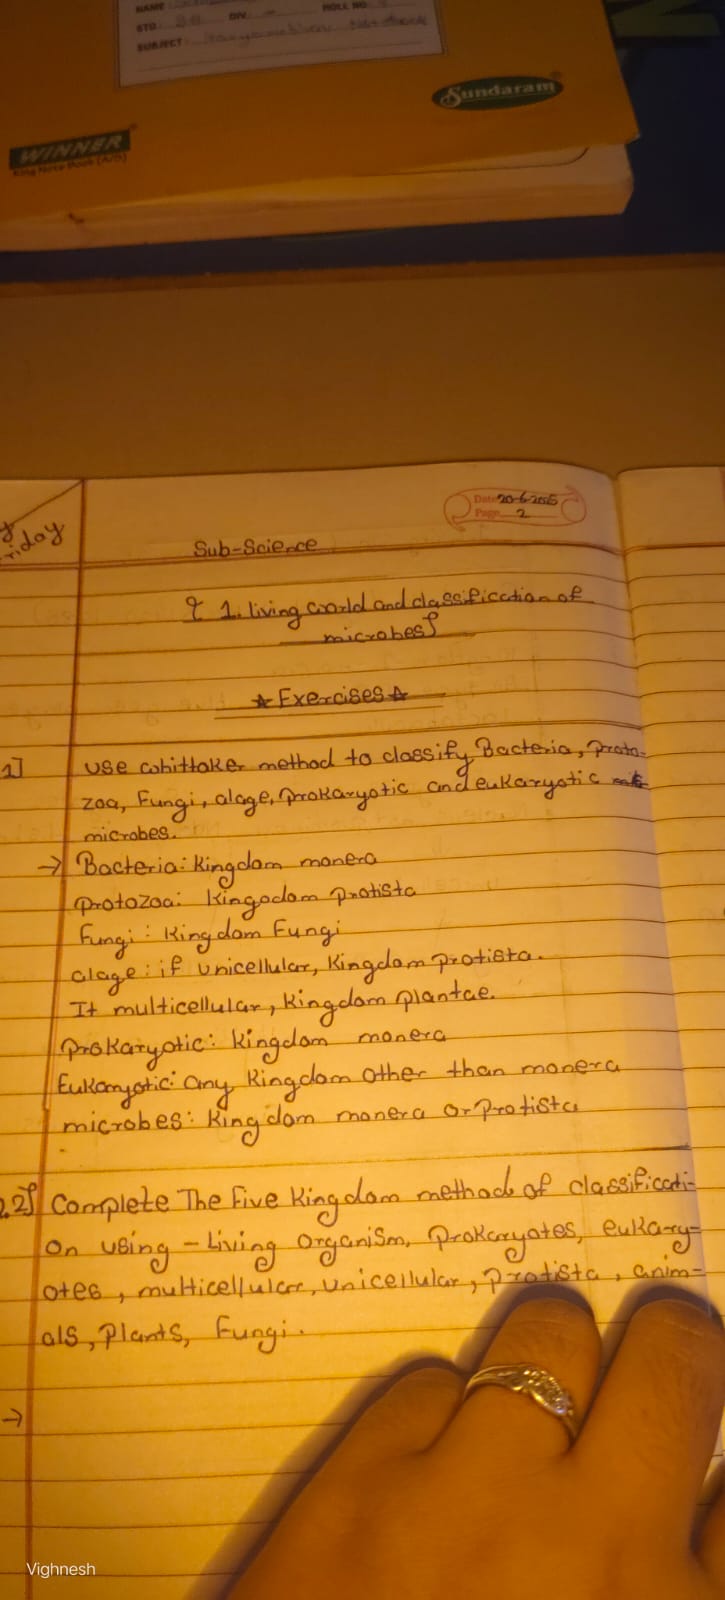 NAME
STD
DIV
ROLL NO.
SUBJECT
Sundaram
WINNER
King Note Book (A/5)
Date 20-6-2025
Page 2
Sub-Science
1. living world and classification of
microbes
★ Exercises ☆
1] use whittaker method to classify Bacteria, Proto-
zoa, Fungi, alage, Prokaryotic and eukaryotic
microbes.
→ Bacteria: Kingdom monera
Protozoa: Kingodom Protista
Fungi: Kingdom Fungi
alage: if unicellular, Kingdom protista.
It multicellular, Kingdom plantae.
Prokaryotic: Kingdom monera
Eukaryotic: any Kingdom other than monera
microbes: Kingdom monera or Protista
2.2] Complete The Five Kingdom method of classificati-
on using - Living Organism, Prokaryotes, eukary-
otes, multicellular, unicellular, Protista, anim-
als, Plants, Fungi.
→
Vighnesh